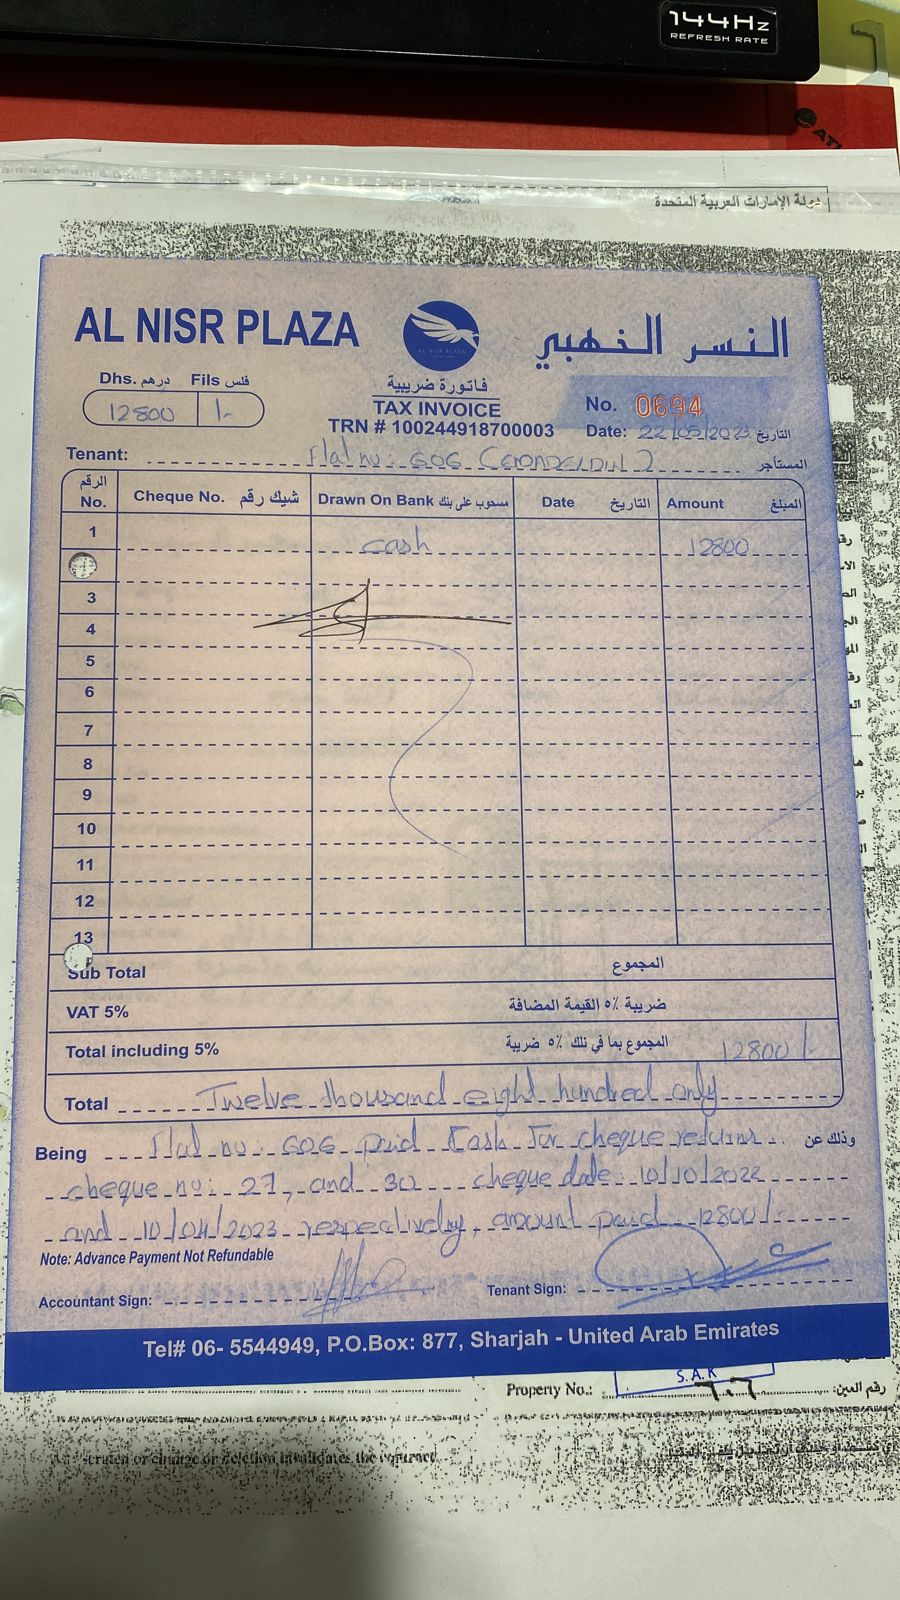 144Hz
REFRESH RATE
دولة الإمارات العربية المتحدة
AL NISR PLAZA
النسر الذهبي
AL NISR PLAZA
Dhs. درهم Fils فلس
12800 /-
فاتورة ضريبية
TAX INVOICE
TRN # 100244918700003
No. 0694
Date: 22/05/2023 التاريخ
Tenant: Flat no: 606 المستأجر
الرقم No. Cheque No. شيك رقم Drawn On Bank مسحوب على بنك Date التاريخ Amount المبلغ
1 cash 12800
3
4
5
6
7
8
9
10
11
12
13
Sub Total المجموع
VAT 5% ضريبة ٥٪ القيمة المضافة
Total including 5% المجموع بما في ذلك ٥٪ ضريبة 12800/-
Total Twelve thousand eight hundred only
Being Flat no: 606 paid Cash for cheque returns وذلك عن
cheque no: 27, and 30 cheque date: 10/10/2022
and 10/04/2023 respectively, amount paid 12800/-
Note: Advance Payment Not Refundable
Accountant Sign: Tenant Sign:
Tel# 06- 5544949, P.O.Box: 877, Sharjah - United Arab Emirates
S.A.K
Property No.: ٦٠٦ رقم العين:
or change or deletion invalidates the contract